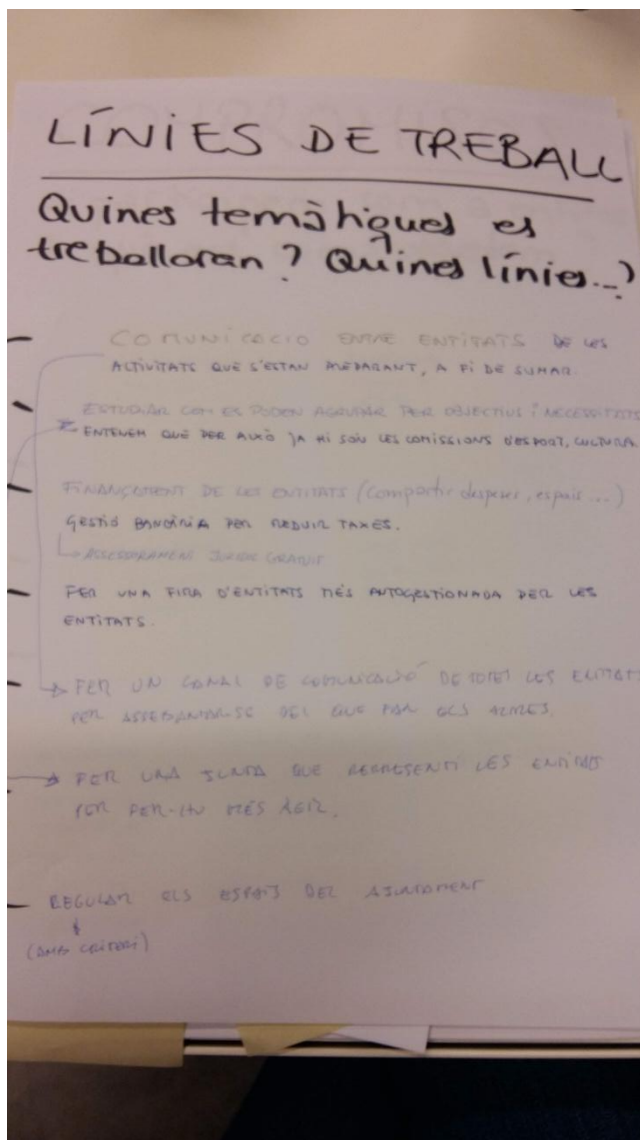 LÍNIES DE TREBALL
Quines temàtiques es
treballaran? Quines línies...?
COMUNICACIO ENTRE ENTITATS DE LES
ACTIVITATS QUE S'ESTAN PREPARANT, A FI DE SUMAR.
ESTUDIAR COM ES PODEN AGRUPAR PER OBJECTIUS I NECESSITATS
ENTENEM QUE PER AIXÒ JA HI SÓN LES COMISSIONS D'ESPORT, CULTURA.
FINANÇAMENT DE LES ENTITATS (Compartir despeses, espais...)
GESTIÓ BANCÀRIA PER REDUIR TAXES.
ASSESSORAMENT JURIDIC GRATUIT
FER UNA FIRA D'ENTITATS MÉS AUTOGESTIONADA PER LES
ENTITATS.
FER UN CANAL DE COMUNICACIÓ DE TOTES LES ENTITATS
PER ASSEBANTAR-SE DEL QUE FAN ELS ALTRES.
FER UNA JUNTA QUE REPRESENTI LES ENTITATS
PER FER-HO MÉS ÀGIL.
REGULAR ELS ESPAIS DEL AJUNTAMENT
(AMB CRITERI)